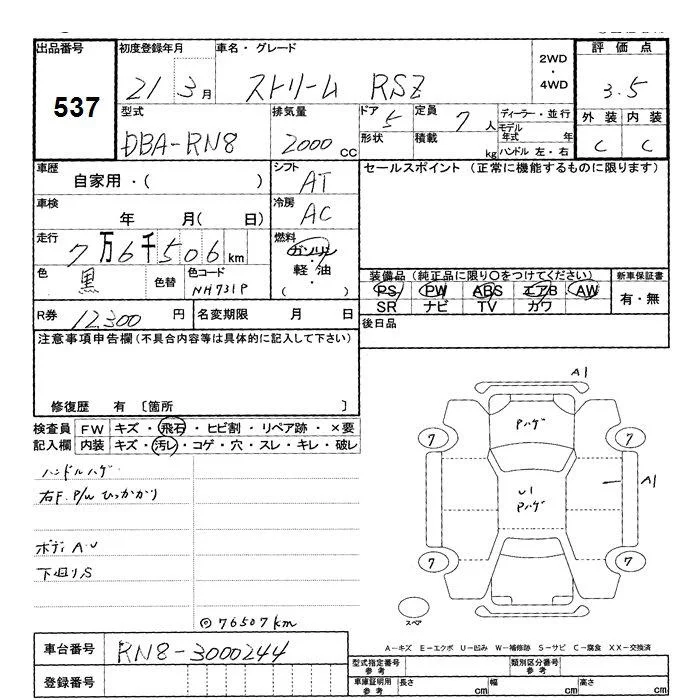 出品番号
537
初度登録年月
21 3月
車名・グレード
ストリーム RSZ
2WD
・
4WD
評価点
3.5
外装 内装
C C
型式
DBA-RN8
排気量
2000 CC
ドア 5
形状
定員 7 人
積載 kg
ディーラー・並行
モデル年式 年
ハンドル 左・右
車歴
自家用・( )
シフト
AT
セールスポイント (正常に機能するものに限ります)
車検
年 月( 日)
冷房
AC
走行
7万6千506km
燃料
ガソリン
・
軽油
( )
色
黒
色替
色コード
NH731P
装備品 (純正品に限り○をつけてください)
PS PW ABS エアB AW
SR ナビ TV カワ
新車保証書
有・無
R券 12,300 円
名変期限 月 日
後日品
注意事項申告欄(不具合内容等は具体的に記入して下さい)
修復歴 有 〔箇所 〕
検査員 FW キズ・飛石・ヒビ割・リペア跡・×要
記入欄 内装 キズ・汚レ・コゲ・穴・スレ・キレ・破レ
ハンドルハゲ
右F.P/Wひっかかり
ボディA.U
下回りS
◎76507km
A1
Pハゲ
7 7
U1
Pハゲ
A1
7 7
スペア
A-キズ E-エクボ U-凹み W-補修跡 S-サビ C-腐食 XX-交換済
車台番号 RN8-3000244
登録番号
型式指定番号
参考
類別区分番号
参考
車庫証明用
参考
長さ cm 幅 cm 高さ cm